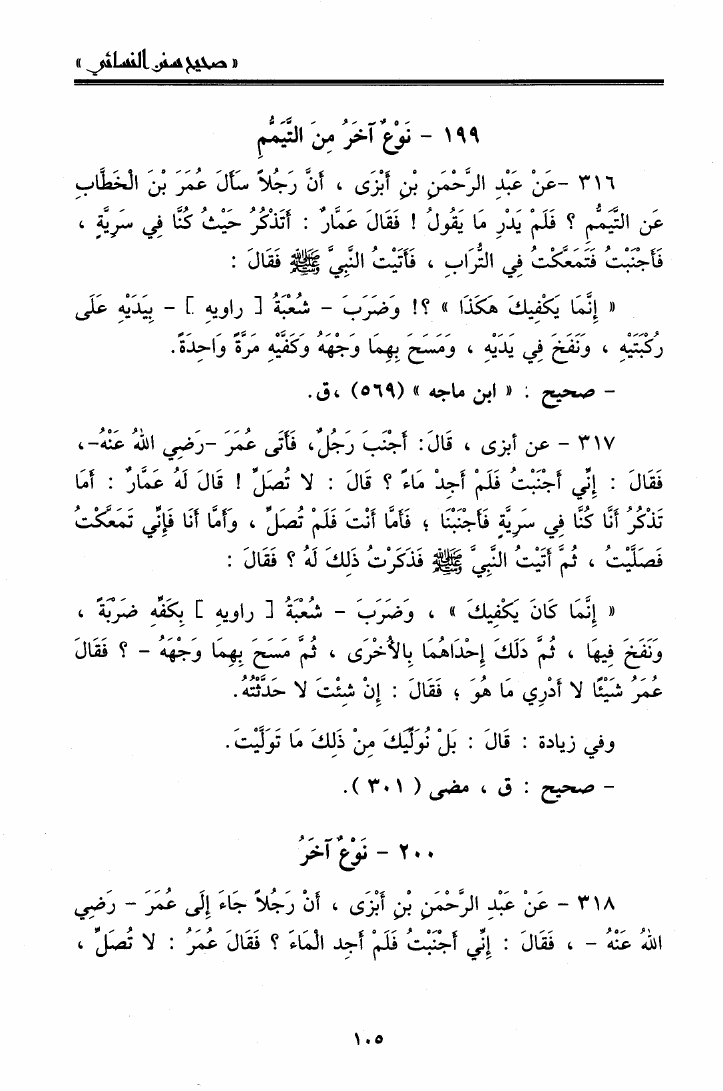 « صحيح سنن النسائي »
١٩٩ - نَوْعٌ آخَرُ مِنَ التَّيَمُّمِ
٣١٦ -عَنْ عَبْدِ الرَّحْمَنِ بْنِ أَبْزَى ، أَنَّ رَجُلاً سَأَلَ عُمَرَ بْنَ الْخَطَّابِ
عَنِ التَّيَمُّمِ ؟ فَلَمْ يَدْرِ مَا يَقُولُ ! فَقَالَ عَمَّارٌ : أَتَذْكُرُ حَيْثُ كُنَّا فِي سَرِيَّةٍ ،
فَأَجْنَبْتُ فَتَمَعَّكْتُ فِي التُّرَابِ ، فَأَتَيْتُ النَّبِيَّ ﷺ فَقَالَ :
« إِنَّمَا يَكْفِيكَ هَكَذَا » ؟! وَضَرَبَ - شُعْبَةُ [ راويهِ ] - بِيَدَيْهِ عَلَى
رُكْبَتَيْهِ ، وَنَفَخَ فِي يَدَيْهِ ، وَمَسَحَ بِهِمَا وَجْهَهُ وَكَفَّيْهِ مَرَّةً وَاحِدَةً.
- صحيح : « ابن ماجه » (٥٦٩) ،ق.
٣١٧ - عن أبزى ، قَالَ: أَجْنَبَ رَجُلٌ، فَأَتَى عُمَرَ -رَضِي اللهُ عَنْهُ-،
فَقَالَ : إِنِّي أَجْنَبْتُ فَلَمْ أَجِدْ مَاءً ؟ قَالَ : لا تُصَلِّ ! قَالَ لَهُ عَمَّارٌ : أَمَا
تَذْكُرُ أَنَّا كُنَّا فِي سَرِيَّةٍ فَأَجْنَبْنَا ؛ فَأَمَّا أَنْتَ فَلَمْ تُصَلِّ ، وَأَمَّا أَنَا فَإِنِّي تَمَعَّكْتُ
فَصَلَّيْتُ ، ثُمَّ أَتَيْتُ النَّبِيَّ ﷺ فَذَكَرْتُ ذَلِكَ لَهُ ؟ فَقَالَ :
« إِنَّمَا كَانَ يَكْفِيكَ » ، وَضَرَبَ - شُعْبَةُ [ راويهِ ] بِكَفِّهِ ضَرْبَةً ،
وَنَفَخَ فِيهَا ، ثُمَّ دَلَكَ إِحْدَاهُمَا بِالأُخْرَى ، ثُمَّ مَسَحَ بِهِمَا وَجْهَهُ - ؟ فَقَالَ
عُمَرُ شَيْئًا لا أَدْرِي مَا هُوَ ؛ فَقَالَ : إِنْ شِئْتَ لا حَدَّثْتُهُ.
وفي زيادة : قَالَ : بَلْ نُوَلِّيكَ مِنْ ذَلِكَ مَا تَوَلَّيْتَ.
- صحيح : ق ، مضى ( ٣٠١ ).
٢٠٠ - نَوْعٌ آخَرُ
٣١٨ - عَنْ عَبْدِ الرَّحْمَنِ بْنِ أَبْزَى ، أَنْ رَجُلاً جَاءَ إِلَى عُمَرَ - رَضِي
اللهُ عَنْهُ - ، فَقَالَ : إِنِّي أَجْنَبْتُ فَلَمْ أَجِدِ الْمَاءَ ؟ فَقَالَ عُمَرُ : لا تُصَلِّ ،
١٠٥